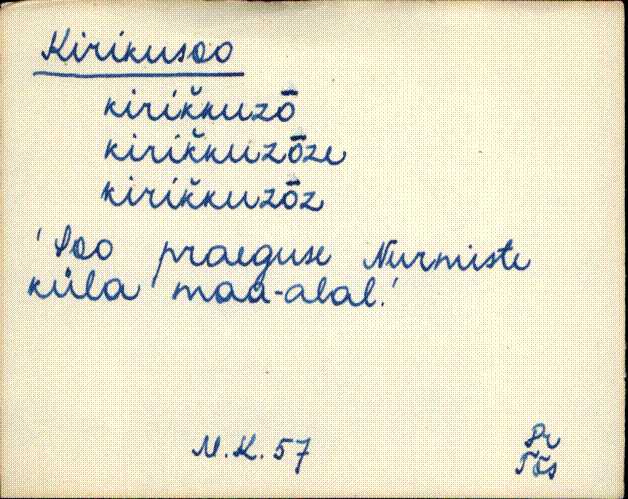 Kirikusoo
kirìk̆kuzō
kirìk̆kuzōze
kirìk̆kuzōz
'Soo praeguse Nurmiste
küla maa-alal.'
M.K. 57
Pr
Tõs